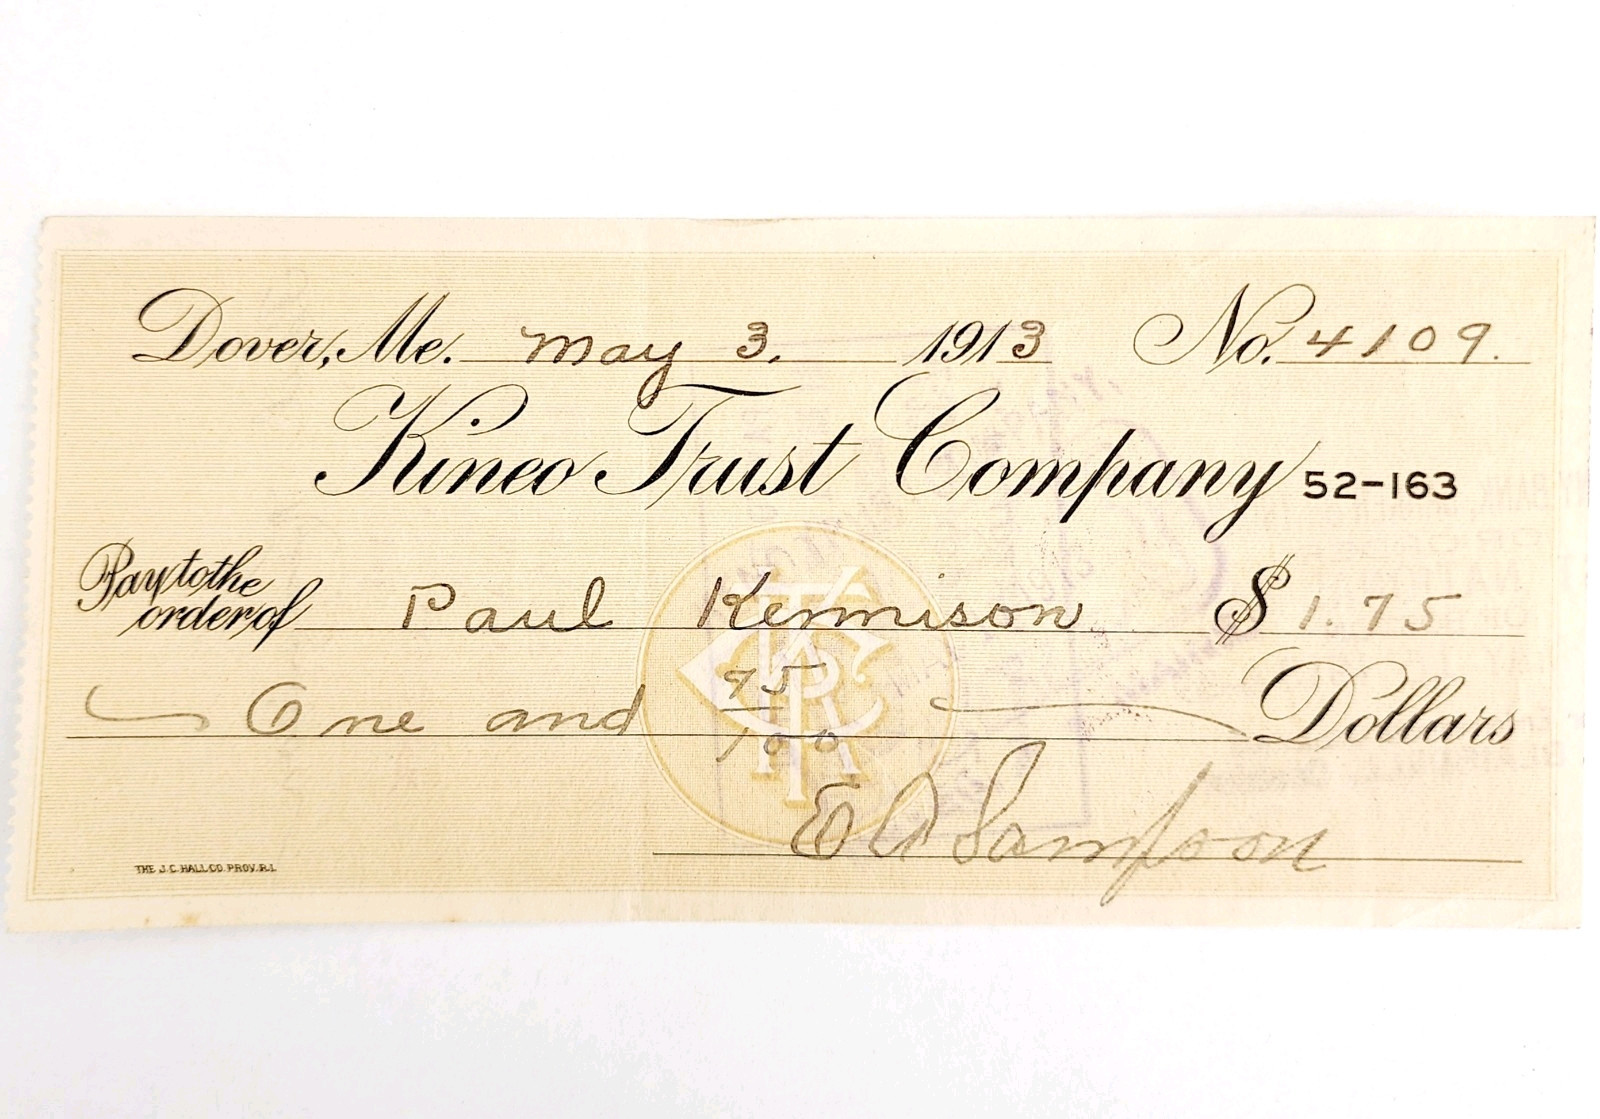 Dover, Me. May 3. 1913 No. 4109.
Kineo Trust Company 52-163
Pay to the
order of Paul Kennison $1.75
One and 75/100 Dollars
E A Sampson
THE J.C. HALL CO. PROV. R.I.
KTC